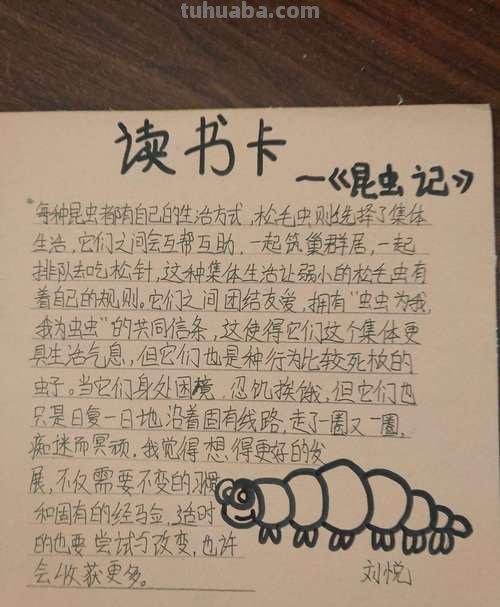 tuhuaba.com
读书卡
—《昆虫记》
每种昆虫都有自己的生活方式，松毛虫则选择了集体
生活，它们之间会互帮互助，一起筑巢群居，一起
排队去吃松针，这种集体生活让弱小的松毛虫有
着自己的规则。它们之间团结友爱，拥有“虫虫为我，
我为虫虫”的共同信条，这使得它们这个集体更
具生活气息，但它们也是种行为比较死板的
虫子。当它们身处困境，忍饥挨饿，但它们也
只是日复一日地沿着固有线路，走了一圈又一圈，
痴迷而冥顽。我觉得想得更好的发
展，不仅需要不变的习惯
和固有的经验，适时
的也要尝试于改变，也许
会收获更多。
刘悦